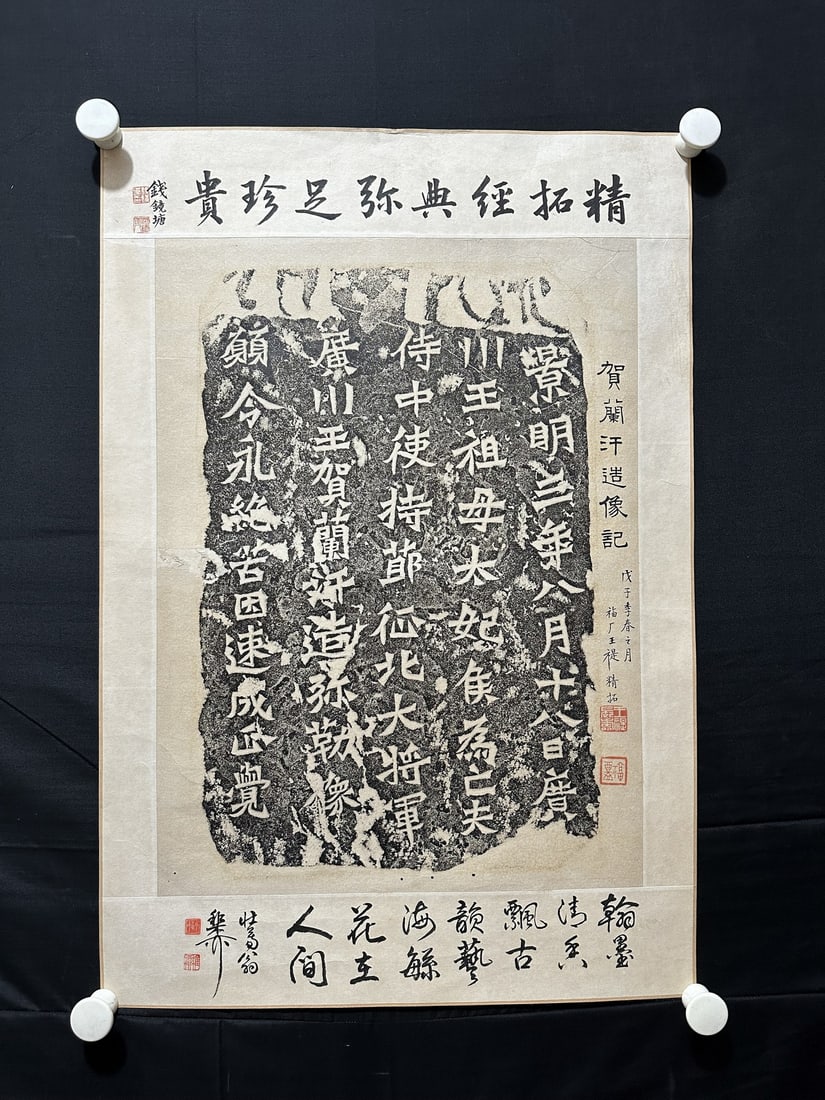 精拓經典弥足珍貴
錢鏡塘
賀蘭汗造像記
戊子季春之月
福厂王禔精拓
景明三年八月十八日廣
川王祖母太妃侯為亡夫
侍中使持節征北大將軍
廣川王賀蘭汗造弥勒像
願令永絕苦因速成正覺
翰墨
清香
飄古
韻藝
海緐
花在
人間
壯暮翁
稚柳